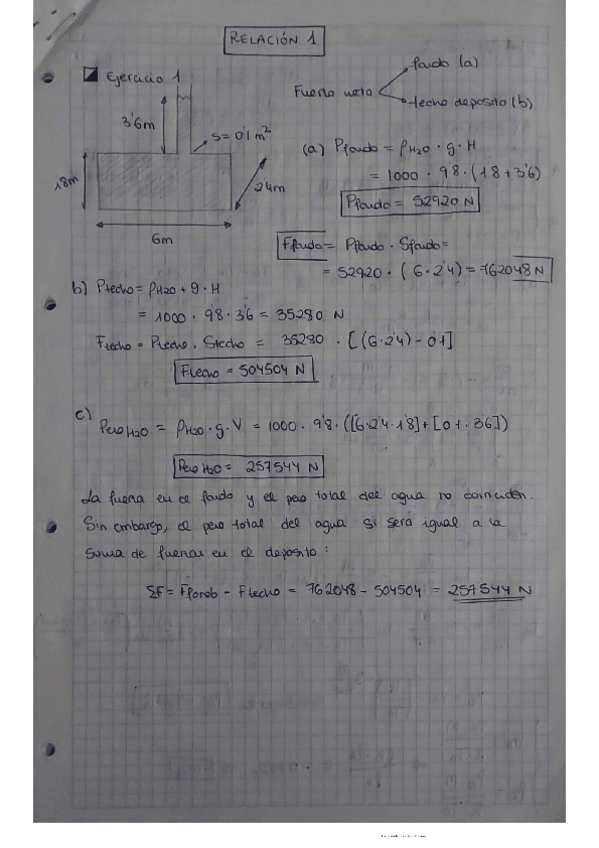 RELACIÓN 1
Ejercicio 1
Fuerza neta
fondo (a)
techo deposito (b)
3'6m
S=0'1 m²
1'8m
2'4m
6m
(a) Pfondo = ρH2O · g · H
= 1000 · 9'8 · (1'8 + 3'6)
Pfondo = 52920 N
Ffondo = Pfondo · Sfondo =
= 52920 · (6·2'4) = 762048 N
b) Ptecho = ρH2O + g · H
= 1000 · 9'8 · 3'6 = 35280 N
Ftecho = Ptecho · Stecho = 35280 · [(6·2'4) - 0'1]
Ftecho = 504504 N
c)
Peso H2O = ρH2O · g · V = 1000 · 9'8 · ([6·2'4·1'8]+[0'1·3'6])
Peso H2O = 257544 N
La fuerza en el fondo y el peso total del agua no coinciden.
Sin embargo, el peso total del agua si será igual a la
suma de fuerzas en el deposito:
ΣF = Ffondo - Ftecho = 762048 - 504504 = 257544 N